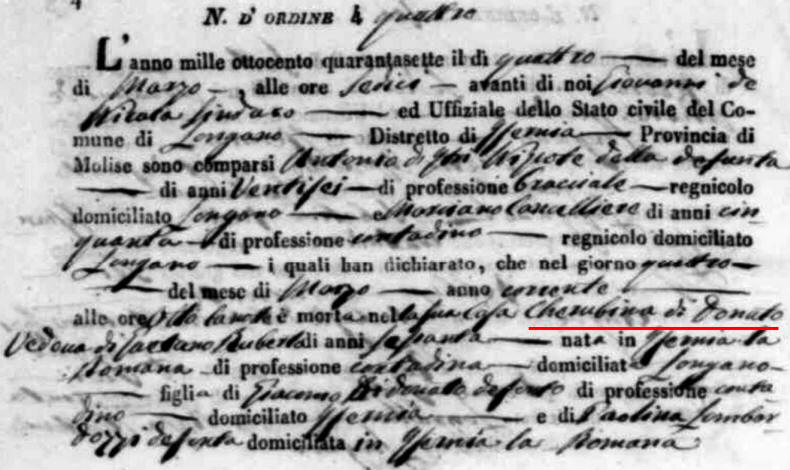 N. D' ORDINE 4 quattro
L'anno mille ottocento quarantasette il dì quattro — del mese
di Marzo —, alle ore sedici — avanti di noi Giovanni de
Nicola Sindaco — ed Uffiziale dello Stato civile del Co-
mune di Longano — Distretto di Isernia — Provincia di
Molise sono comparsi Antonio di Nipote della defunta
— di anni Ventisei — di professione Bracciale — regnicolo
domiciliato Longano — e Marciano Cancelliere di anni cin
quanta — di professione contadino — regnicolo domiciliato
Longano — i quali han dichiarato, che nel giorno quattro —
— del mese di Marzo — anno corrente —
alle ore Otto la notte è morta nella sua Casa Cherubina di Donato
Vedova di Gaetano di anni Sessanta — nata in Isernia la
Romana di professione contadina — domiciliata Longano —
— figlia di Giacomo di Donato defonto di professione conta
dino — domiciliato Isernia — e di Paolina Lombar
dozzi defonta domiciliata in Isernia la Romana